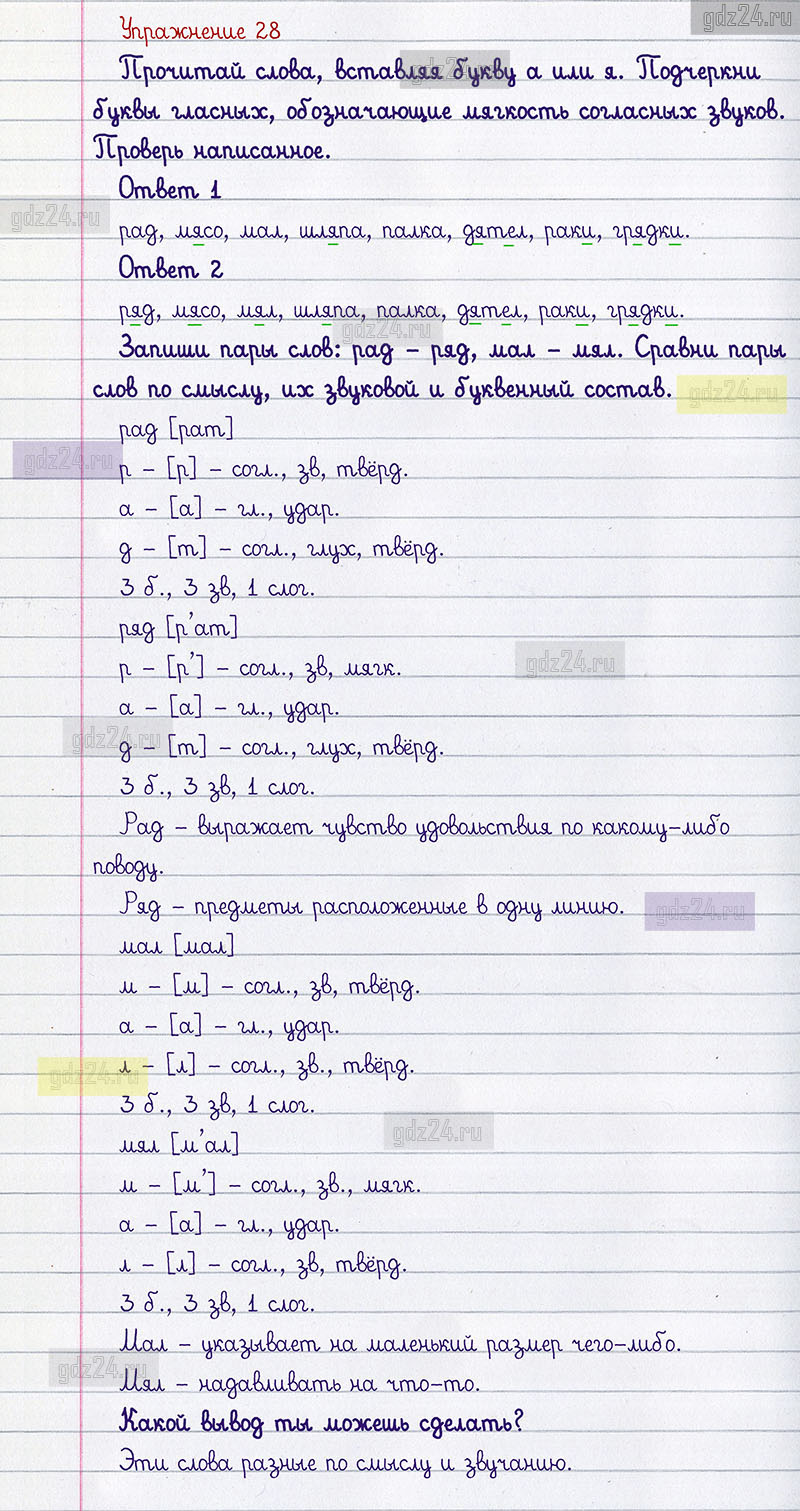 gdz24.ru
Упражнение 28
Прочитай слова, вставляя букву а или я. Подчеркни
gdz24.ru
буквы гласных, обозначающие мягкость согласных звуков.
Проверь написанное.
Ответ 1
gdz24.ru
рад, мясо, мал, шляпа, палка, дятел, раки, грядки.
Ответ 2
ряд, мясо, мял, шляпа, палка, дятел, раки, грядки.
gdz24.ru
Запиши пары слов: рад – ряд, мал – мял. Сравни пары
слов по смыслу, их звуковой и буквенный состав.
gdz24.ru
рад [рат]
gdz24.ru
р – [р] – согл., зв, твёрд.
а – [а] – гл., удар.
д – [т] – согл., глух, твёрд.
3 б., 3 зв, 1 слог.
ряд [р'ат]
р – [р'] – согл., зв, мягк.
gdz24.ru
а – [а] – гл., удар.
gdz24.ru
д – [т] – согл., глух, твёрд.
3 б., 3 зв, 1 слог.
Рад – выражает чувство удовольствия по какому-либо
поводу.
Ряд – предметы расположенные в одну линию.
gdz24.ru
мал [мал]
м – [м] – согл., зв, твёрд.
а – [а] – гл., удар.
л – [л] – согл., зв., твёрд.
gdz24.ru
3 б., 3 зв, 1 слог.
gdz24.ru
мял [м'ал]
м – [м'] – согл., зв., мягк.
а – [а] – гл., удар.
л – [л] – согл., зв, твёрд.
3 б., 3 зв, 1 слог.
Мал – указывает на маленький размер чего-либо.
gdz24.ru
Мял – надавливать на что-то.
Какой вывод ты можешь сделать?
Эти слова разные по смыслу и звучанию.